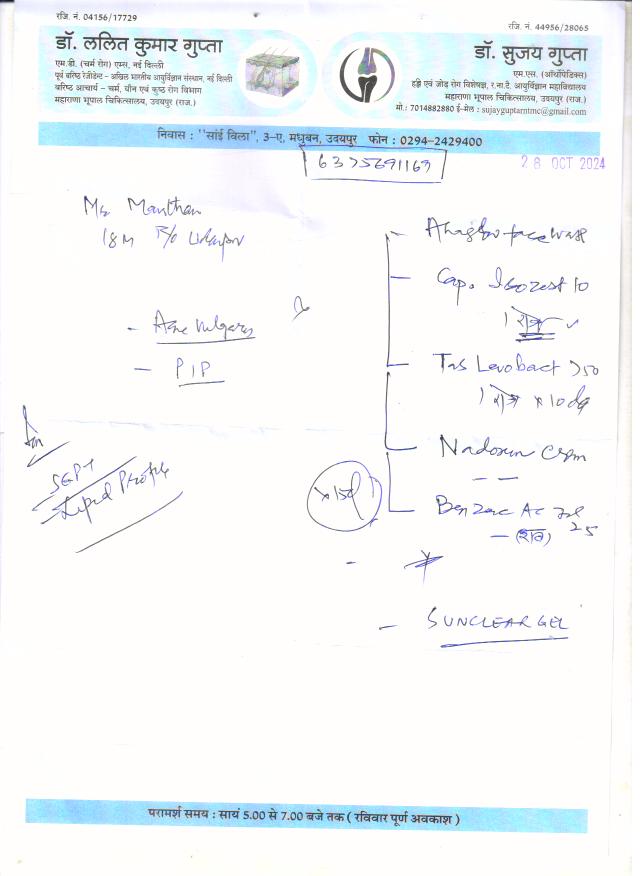 रजि. नं. 04156/17729
डॉ. ललित कुमार गुप्ता
एम.डी. (चर्म रोग) एम्स, नई दिल्ली
पूर्व वरिष्ठ रेजीडेन्ट - अखिल भारतीय आयुर्विज्ञान संस्थान, नई दिल्ली
वरिष्ठ आचार्य - चर्म, यौन एवं कुष्ठ रोग विभाग
महाराणा भूपाल चिकित्सालय, उदयपुर (राज.)
रजि. नं. 44956/28065
डॉ. सुजय गुप्ता
एम.एस. (ऑर्थोपेडिक्स)
हड्डी एवं जोड़ रोग विशेषज्ञ, र.ना.टै. आयुर्विज्ञान महाविद्यालय
महाराणा भूपाल चिकित्सालय, उदयपुर (राज.)
मो.: 7014882880 ई-मेल : sujayguptarntmc@gmail.com
निवास : "सांई विला", 3-ए, मधुबन, उदयपुर फोन : 0294-2429400
28 OCT 2024
Manthan
18 M R/o Udaipur
- Acne Vulgaris
- PIP
face wash
Cap.
10
1 रात्र
Tab Levobact
1 रात्र x 10 
- -
Benzac AC gel
2.5
- (रात्र)
x 15d
Lipid Profile
- SUNCLEAR GEL
परामर्श समय : सायं 5.00 से 7.00 बजे तक ( रविवार पूर्ण अवकाश )